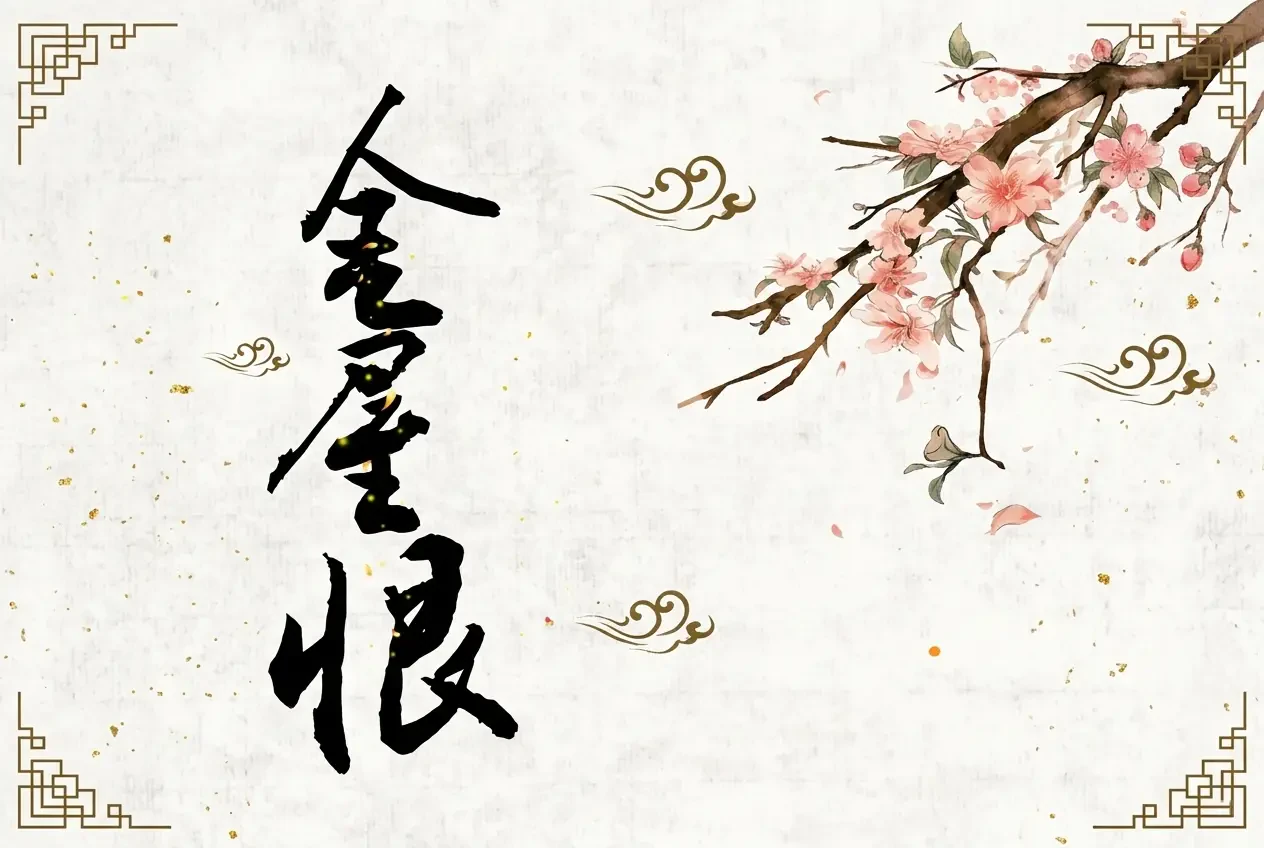 金屋恨